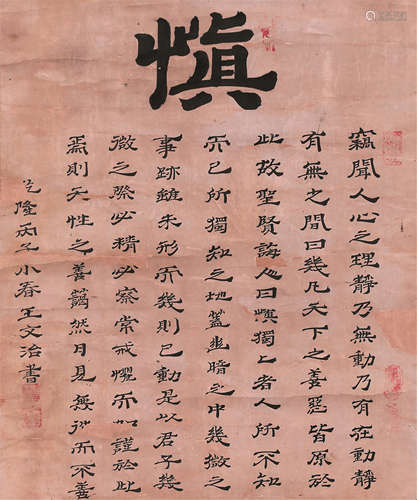 愼
竊聞人心之理靜乃無動乃有在動靜
有無之間曰幾凡天下之善惡皆原於
此故聖賢誨人曰愼獨〻者人所不知
而已所獨知之地蓋幽暗之中幾微之
事跡雖未形而幾則已動是以君子幾
微之際必精必察常戒懼而加謹於此
焉則天性之善藹然日見無行而不善
乾隆丙子小春王文治書